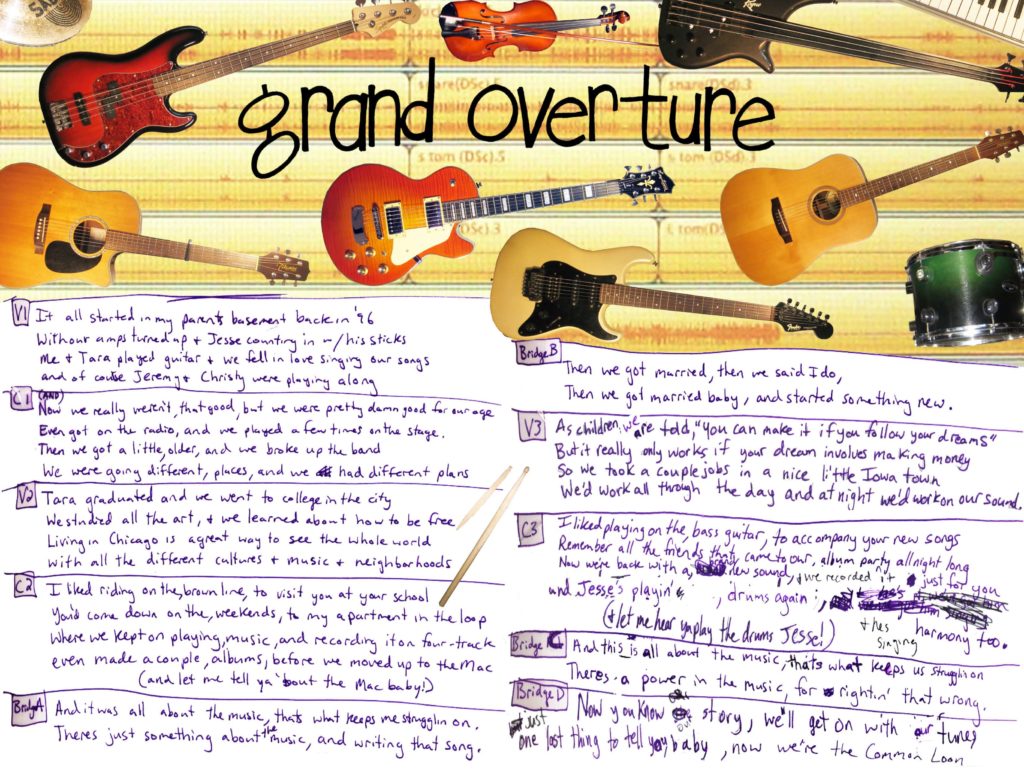 SAB
grand overture
snare(DSc).5
snare(DSd).3
s tom (DSc).5
s tom (DSd).3
Fender
V1 It all started in my parents basement back in '96
With our amps turned up + Jesse counting in w/ his sticks
Me + Tara played guitar + we fell in love singing our songs
and of course Jeremy + Christy were playing along
C1 (AND)
Now we really weren't, that good, but we were pretty damn good for our age
Even got on the radio, and we played a few times on the stage.
Then we got a little, older, and we broke up the band
We were going different, places, and we had different plans
V2 Tara graduated and we went to college in the city
We studied all the art, + we learned about how to be free
Living in Chicago is a great way to see the whole world
with all the different cultures + music + neighborhoods
C2 I liked riding on the, brown line, to visit you at your school
You'd come down on the, weekends, to my apartment in the loop
Where we kept on playing, music, and recording it on four-track
even made a couple, albums, before we moved up to the Mac
(and let me tell ya 'bout the Mac baby!)
Bridge A And it was all about the music, thats what keeps me strugglin on.
Theres just something about the music, and writing that song.
Bridge B Then we got married, then we said I do,
Then we got married baby, and started something new.
V3 As children, we are told, "you can make it if you follow your dreams"
But it really only works if your dream involves making money
So we took a couple jobs in a nice little Iowa town
We'd work all through the day and at night we'd work on our sound.
C3 I liked playing on the, bass guitar, to accompany your new songs
Remember all the friends that, came to our, album party all night long
Now we're back with a, new sound, + we recorded it just for you
and Jesse's playin', drums again, + hes singing harmony too.
(+ let me hear ya play the drums Jesse!)
Bridge C And this is all about the music, thats what keeps us strugglin on
Theres a power in the music, for rightin' that wrong.
Bridge D Now you know our story, we'll get on with our tunes
+ just one last thing to tell you baby, now we're the Common Loon